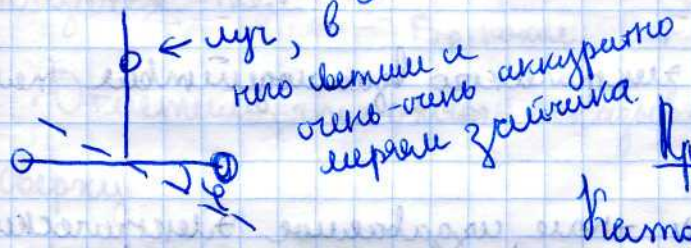 ← луч, в
него светим и
очень-очень аккуратно
меряем зайчика.
φ